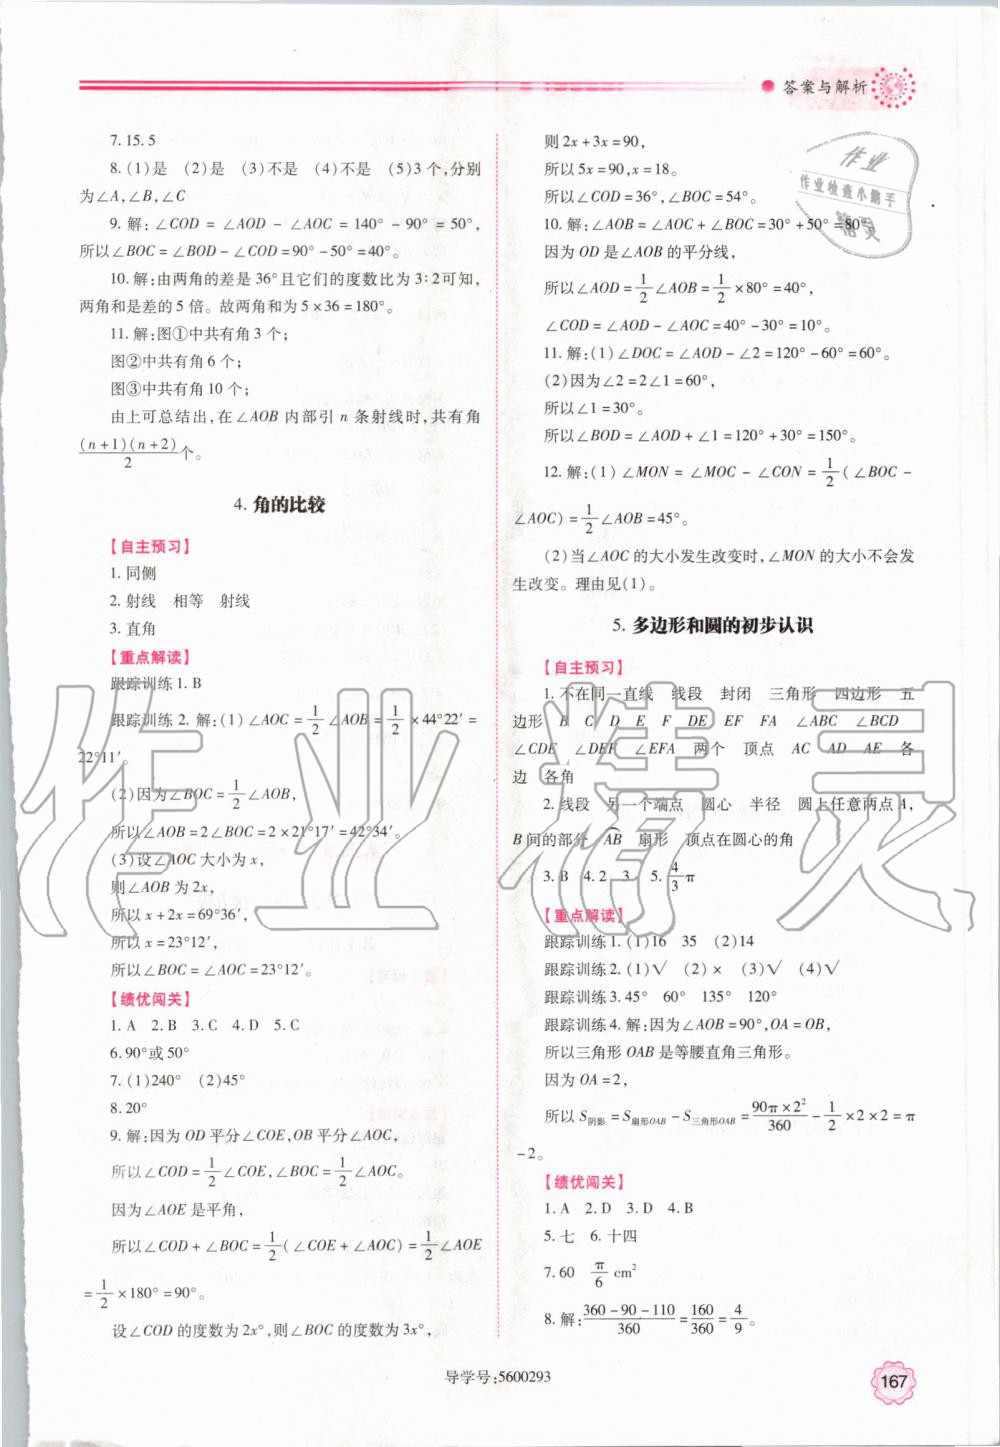 答案与解析
7.15.5
8.(1)是 (2)是 (3)不是 (4)不是 (5)3个,分别
为∠A,∠B,∠C
9.解:∠COD=∠AOD-∠AOC=140°-90°=50°,
所以∠BOC=∠BOD-∠COD=90°-50°=40°。
10.解:由两角的差是36°且它们的度数比为3:2可知,
两角和是差的5倍。故两角和为5×36=180°。
11.解:图①中共有角3个;
图②中共有角6个;
图③中共有角10个;
由上可总结出,在∠AOB内部引n条射线时,共有角
(n+1)(n+2)/2个。
4.角的比较
【自主预习】
1.同侧
2.射线 相等 射线
3.直角
【重点解读】
跟踪训练1.B
跟踪训练2.解:(1)∠AOC=1/2∠AOB=1/2×44°22′=
22°11′。
(2)因为∠BOC=1/2∠AOB,
所以∠AOB=2∠BOC=2×21°17′=42°34′。
(3)设∠AOC大小为x,
则∠AOB为2x,
所以x+2x=69°36′,
所以x=23°12′,
所以∠BOC=∠AOC=23°12′。
【绩优闯关】
1.A 2.B 3.C 4.D 5.C
6.90°或50°
7.(1)240° (2)45°
8.20°
9.解:因为OD平分∠COE,OB平分∠AOC,
所以∠COD=1/2∠COE,∠BOC=1/2∠AOC。
因为∠AOE是平角,
所以∠COD+∠BOC=1/2(∠COE+∠AOC)=1/2∠AOE
=1/2×180°=90°。
设∠COD的度数为2x°,则∠BOC的度数为3x°,
则2x+3x=90,
所以5x=90,x=18。
所以∠COD=36°,∠BOC=54°。
10.解:∠AOB=∠AOC+∠BOC=30°+50°=80°
因为OD是∠AOB的平分线,
所以∠AOD=1/2∠AOB=1/2×80°=40°,
∠COD=∠AOD-∠AOC=40°-30°=10°。
11.解:(1)∠DOC=∠AOD-∠2=120°-60°=60°。
(2)因为∠2=2∠1=60°,
所以∠1=30°。
所以∠BOD=∠AOD+∠1=120°+30°=150°。
12.解:(1)∠MON=∠MOC-∠CON=1/2(∠BOC-
∠AOC)=1/2∠AOB=45°。
(2)当∠AOC的大小发生改变时,∠MON的大小不会发
生改变。理由见(1)。
5.多边形和圆的初步认识
【自主预习】
1.不在同一直线 线段 封闭 三角形 四边形 五
边形 B C D E F DE EF FA ∠ABC ∠BCD
∠CDE ∠DEF ∠EFA 两个 顶点 AC AD AE 各
边 各角
2.线段 另一个端点 圆心 半径 圆上任意两点A,
B间的部分 AB 扇形 顶点在圆心的角
3.B 4.2 3 5.4/3π
【重点解读】
跟踪训练1.(1)16 35 (2)14
跟踪训练2.(1)√ (2)× (3)√ (4)√
跟踪训练3.45° 60° 135° 120°
跟踪训练4.解:因为∠AOB=90°,OA=OB,
所以三角形OAB是等腰直角三角形。
因为OA=2,
所以S阴影=S扇形OAB-S三角形OAB=90π×2²/360-1/2×2×2=π
-2。
【绩优闯关】
1.A 2.D 3.D 4.B
5.七 6.十四
7.60 π/6 cm²
8.解:360-90-110/360=160/360=4/9。
导学号:5600293
167
作业
作业检查小助手
精灵
作业精灵